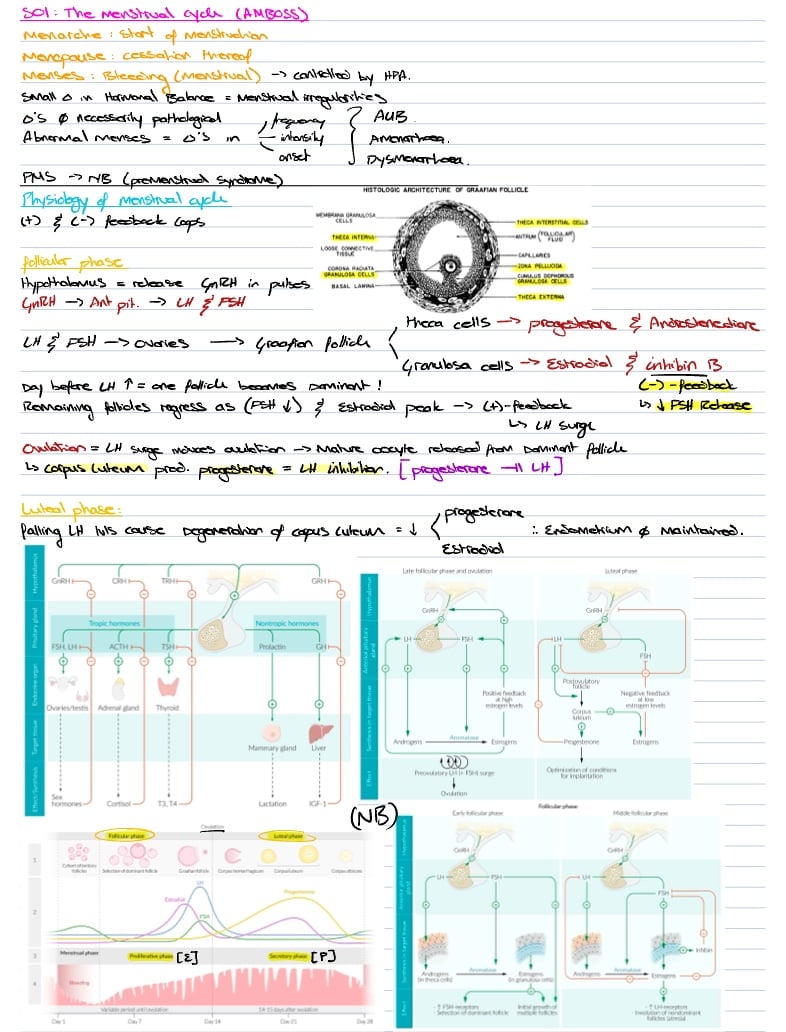 SO1: The Menstrual cycle (AMBOSS)
Menarche: Start of Menstruation
Menopause: cessation thereof
Menses: Bleeding (Menstrual) → controlled by HPA.
Small Δ in Hormonal Balance = Menstrual irregularities
Δ's ∅ necessarily pathological
Abnormal menses = Δ's in
frequency
intensity
onset
AUB
Amenorrhoea.
Dysmenorrhoea.
PMS → NB (premenstrual syndrome)
Physiology of menstrual cycle
(+) & (-) feedback loops
HISTOLOGIC ARCHITECTURE OF GRAAFIAN FOLLICLE
MEMBRANA GRANULOSA CELLS
THECA INTERNA
LOOSE CONNECTIVE TISSUE
CORONA RADIATA
GRANULOSA CELLS
BASAL LAMINA
THECA INTERSTITIAL CELLS
ANTRUM (FOLLICULAR FLUID)
CAPILLARIES
ZONA PELLUCIDA
CUMULUS OOPHOROUS
GRANULOSA CELLS
THECA EXTERNA
follicular phase
Hypothalamus = release GnRH in pulses
GnRH → Ant pit. → LH & FSH
LH & FSH → ovaries → Graafian follicle
Theca cells → progesterone & Androstenedione
Granulosa cells → Estradiol & inhibin B
(-)-feedback
↳ ↓ FSH Release
Day before LH ↑ = one follicle becomes Dominant!
Remaining follicles regress as (FSH ↓) & Estradiol peak → (+)-feedback
↳ LH surge
Ovulation = LH surge induces ovulation → Mature oocyte released from Dominant follicle
↳ corpus luteum prod. progesterone = LH inhibition. [progesterone ⊣ LH]
Luteal phase:
falling LH lvls cause Degeneration of corpus luteum = ↓
progesterone
Estradiol
∴ Endometrium ∅ maintained.
Hypothalamus
GnRH
CRH
TRH
GRH
Pituitary gland
Tropic hormones
Nontropic hormones
FSH, LH
ACTH
TSH
Prolactin
GH
Endocrine organ
Ovaries/testis
Adrenal gland
Thyroid
Target tissue
Mammary gland
Liver
Effect/Synthesis
Sex hormones
Cortisol
T3, T4
Lactation
IGF-1
Late follicular phase and ovulation
Luteal phase
Hypothalamus
GnRH
GnRH
Anterior pituitary gland
LH
FSH
LH
FSH
Synthesis in target tissue
Positive feedback at high estrogen levels
Postovulatory follicle
Corpus luteum
Negative feedback at low estrogen levels
Androgens
Aromatase
Estrogens
Progesterone
Estrogens
Effect
Preovulatory LH (+ FSH) surge
Ovulation
Optimization of conditions for implantation
(NB)
Ovulation
Follicular phase
Luteal phase
1
Cohort of tertiary follicles
Selection of dominant follicle
Graafian follicle
Corpus hemorrhagicum
Corpus luteum
Corpus albicans
2
Estradiol
LH
FSH
Progesterone
3
Menstrual phase
Proliferative phase [E]
Secretory phase [P]
4
Bleeding
Variable period until ovulation
14-15 days after ovulation
Day 1
Day 7
Day 14
Day 21
Day 28
Follicular phase
Early follicular phase
Middle follicular phase
Hypothalamus
GnRH
GnRH
Anterior pituitary gland
LH
FSH
LH
FSH
Synthesis in target tissue
Inhibin
Androgens (in theca cells)
Aromatase
Estrogens (in granulosa cells)
Androgens
Aromatase
Estrogens
Effect
- ↑ FSH-receptors
- Selection of dominant follicle
Initial growth of multiple follicles
- ↑ LH-receptors
- Involution of nondominant follicles (atresia)